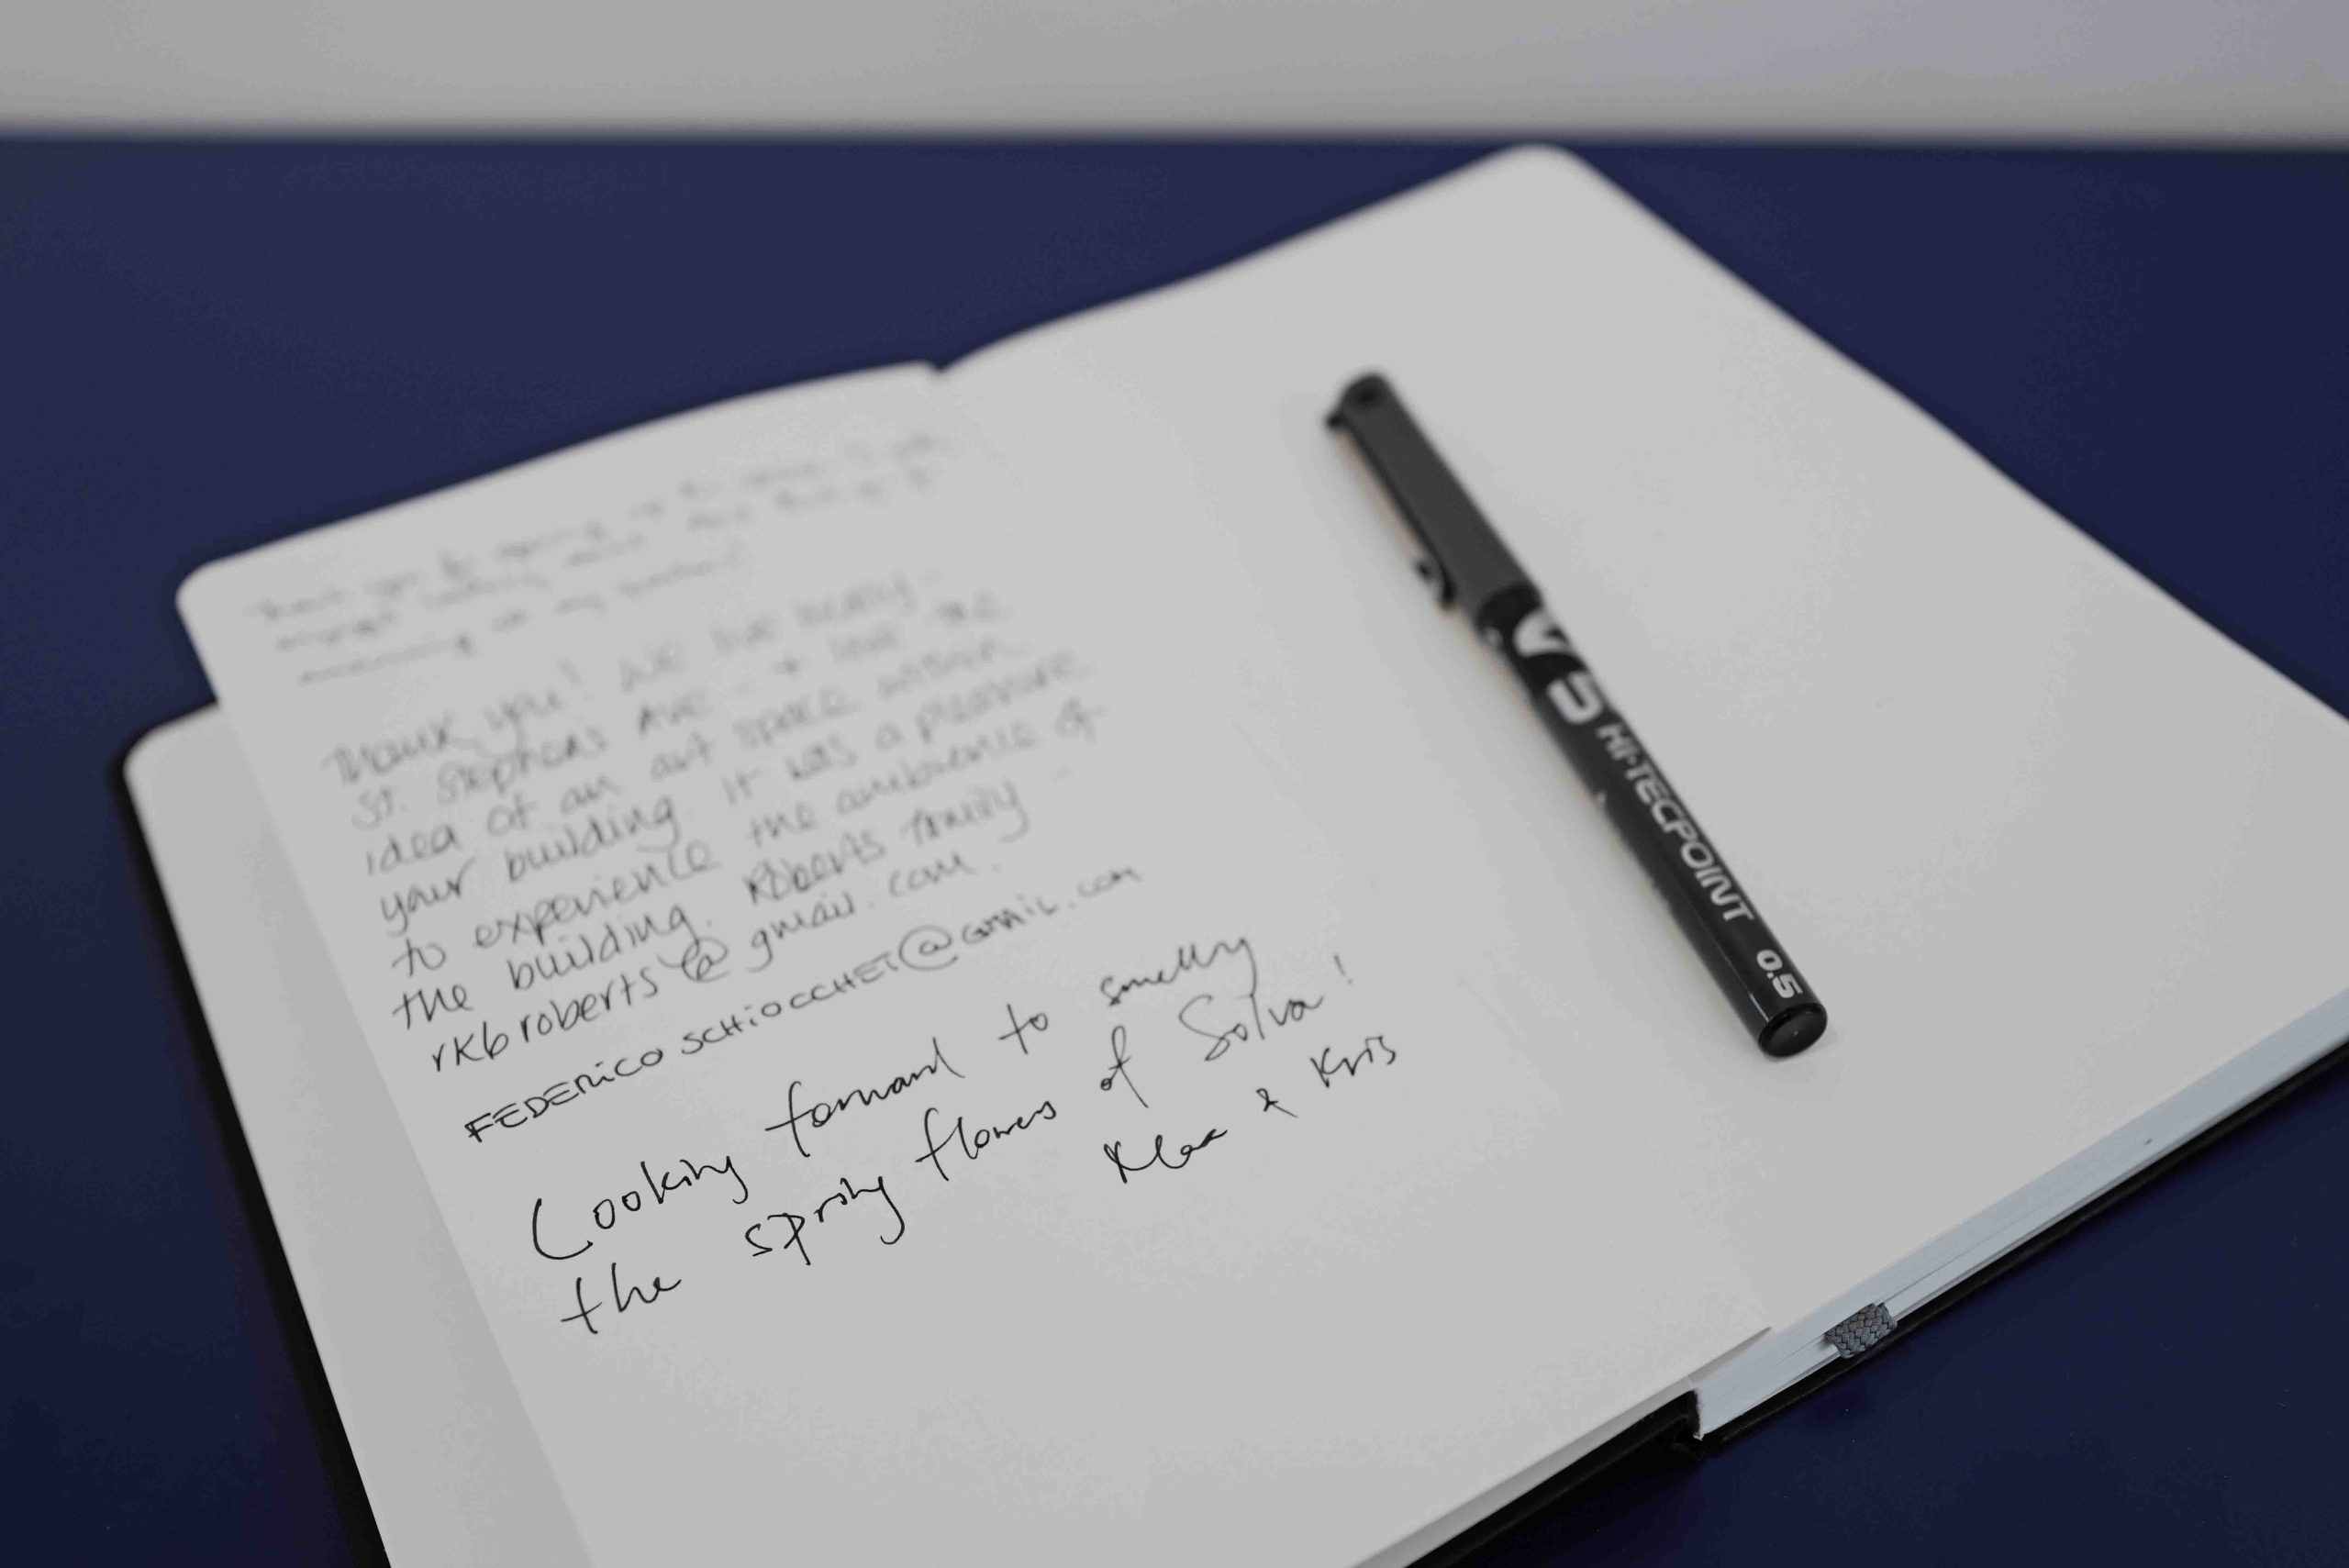 Thank you! We live locally -
St. Stephens Ave - + love the
idea of an art space within
your building. It was a pleasure
to experience the ambience of
the building. Roberts family -
rkbroberts@gmail.com.
FEDERICO SCHIOCCHET@GMAIL.COM
Looking forward to smelly
the spring flowers of Solva!
& Kris
V5 HI-TECPOINT 0.5